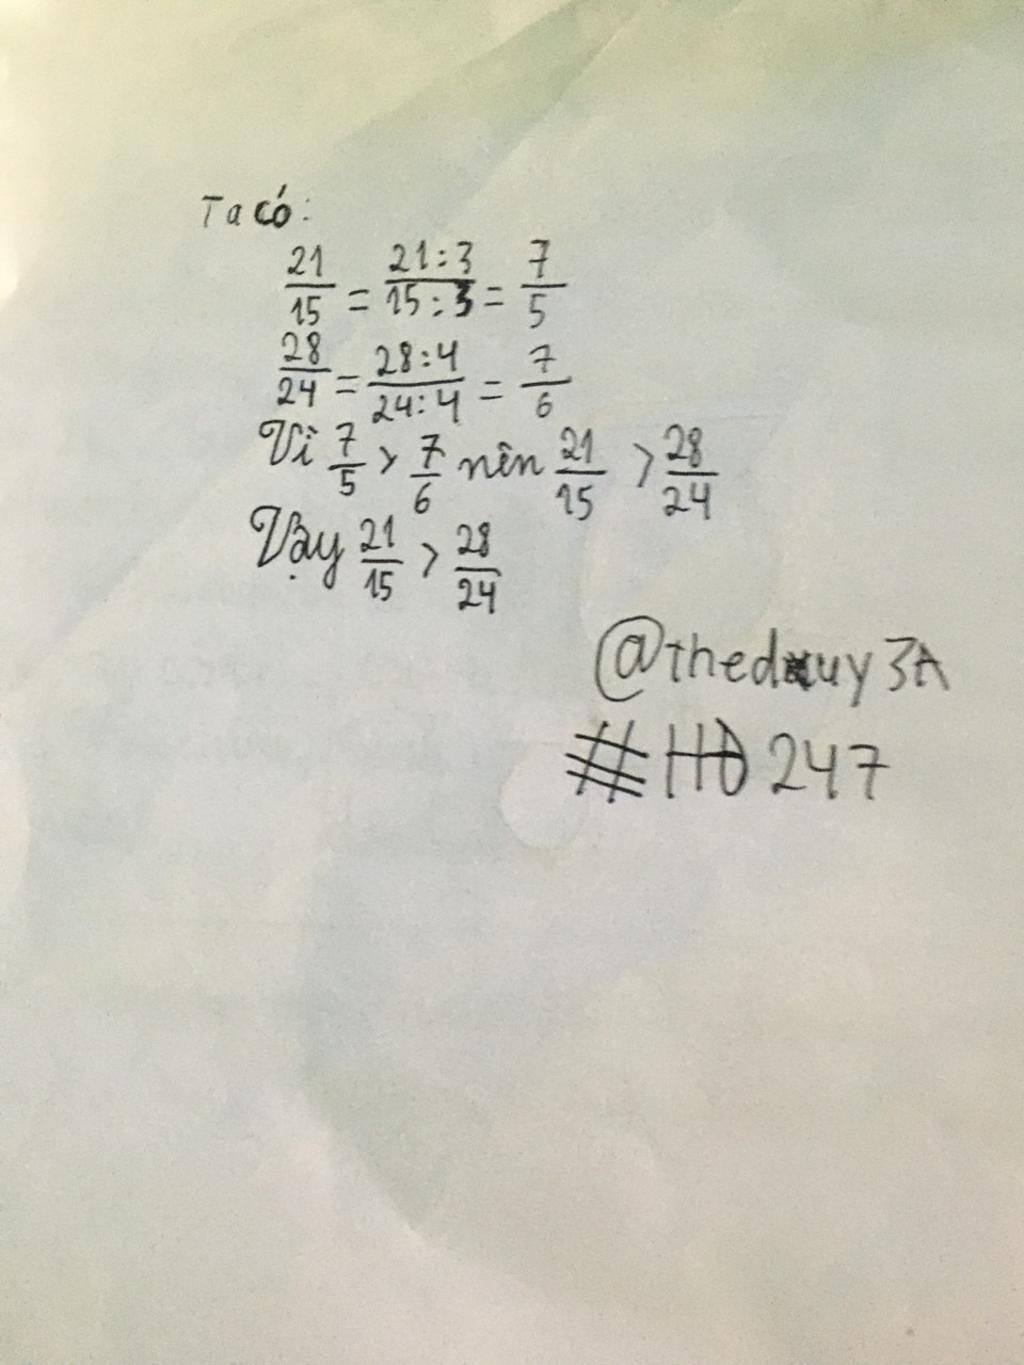 Ta có:
21/15 = 21:3/15:3 = 7/5
28/24 = 28:4/24:4 = 7/6
Vì 7/5 > 7/6 nên 21/15 > 28/24
Vậy 21/15 > 28/24
@theduy3A
#HĐ247